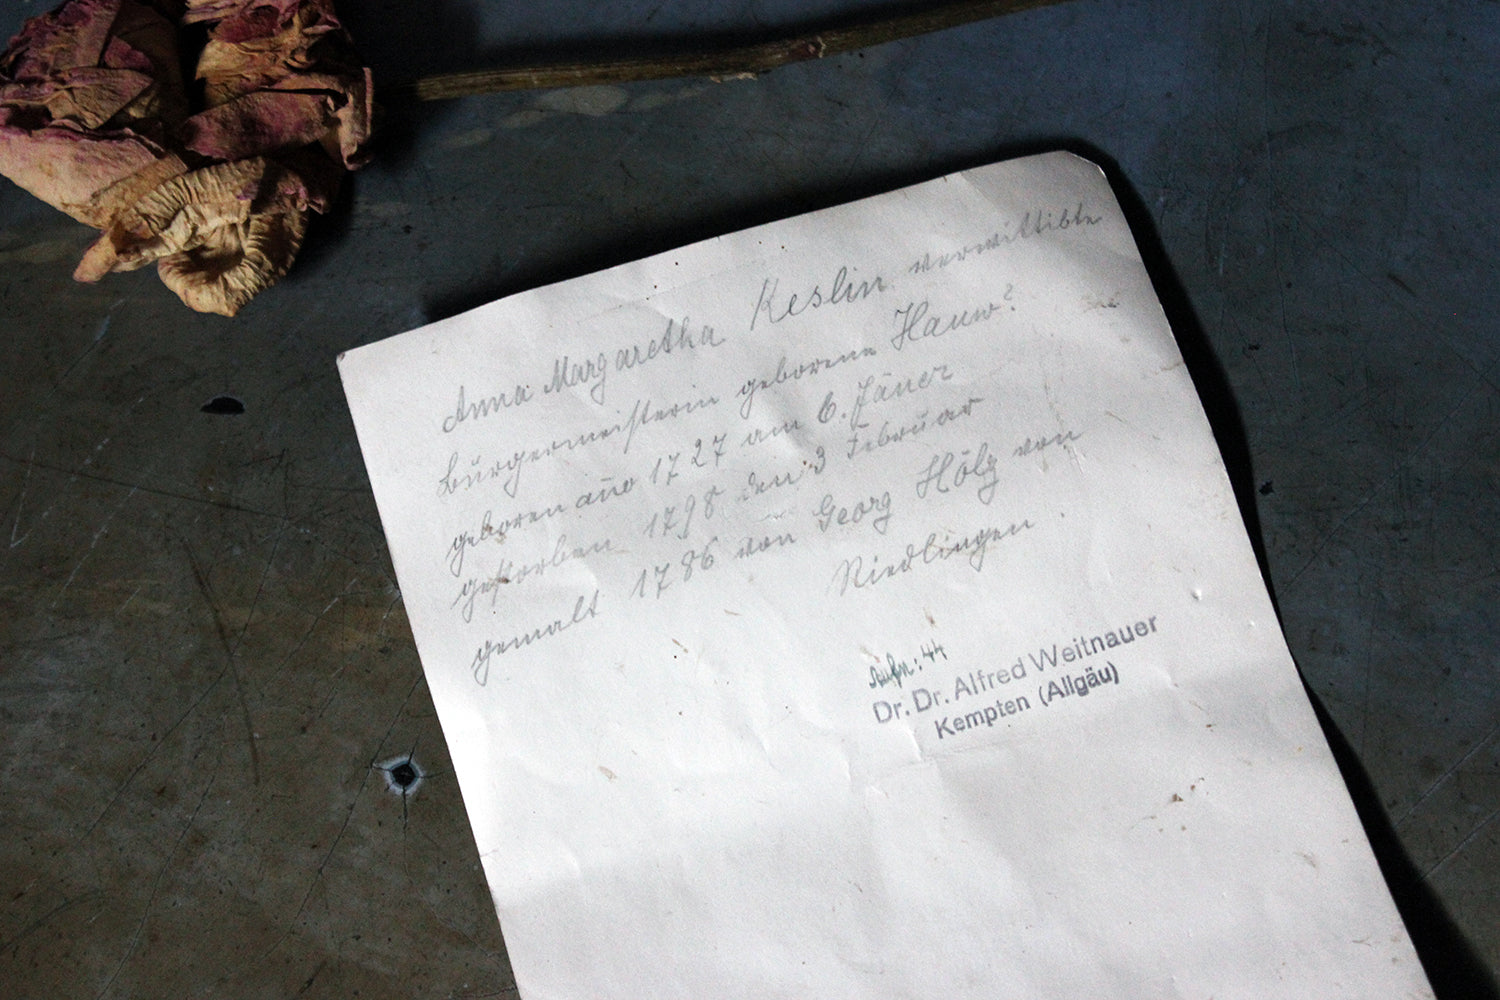 Anna Margaretha Keslin verwittibte
Bürgermeisterin geborene Hauw?
geboren año 1727 am 6. Jäner
gestorben 1798 den 3 Februar
gemalt 1786 von Georg Hölz von
Riedlingen.
Aufn: 44
Dr. Dr. Alfred Weitnauer
Kempten (Allgäu)